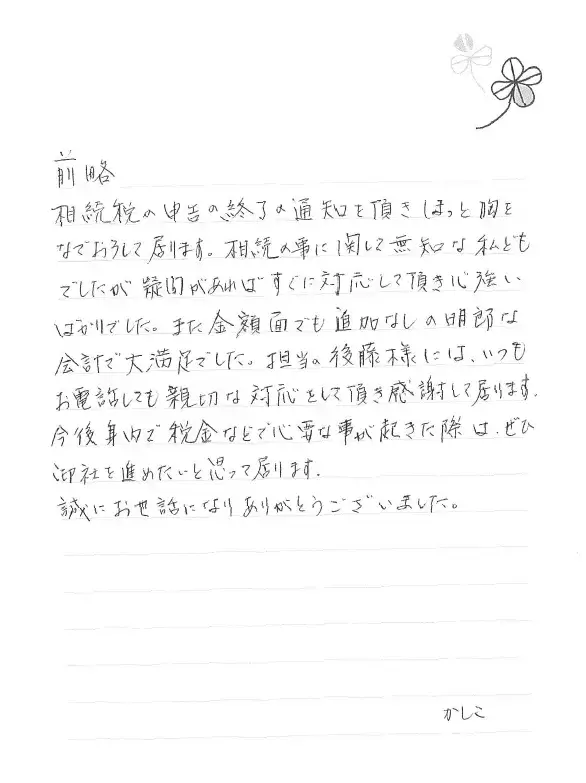 前略
相続税の申告の終了の通知を頂きほっと胸を
なでおろして居ります。相続の事に関して無知な私ども
でしたが疑問があればすぐに対応して頂き心強い
ばかりでした。また金額面でも追加なしの明朗な
会計で大満足でした。担当の後藤様には、いつも
お電話しても親切な対応をして頂き感謝して居ります.
今後身内で税金などで必要な事が起きた際は、ぜひ
御社を進めたいと思って居ります.
誠にお世話になりありがとうございました。
かしこ